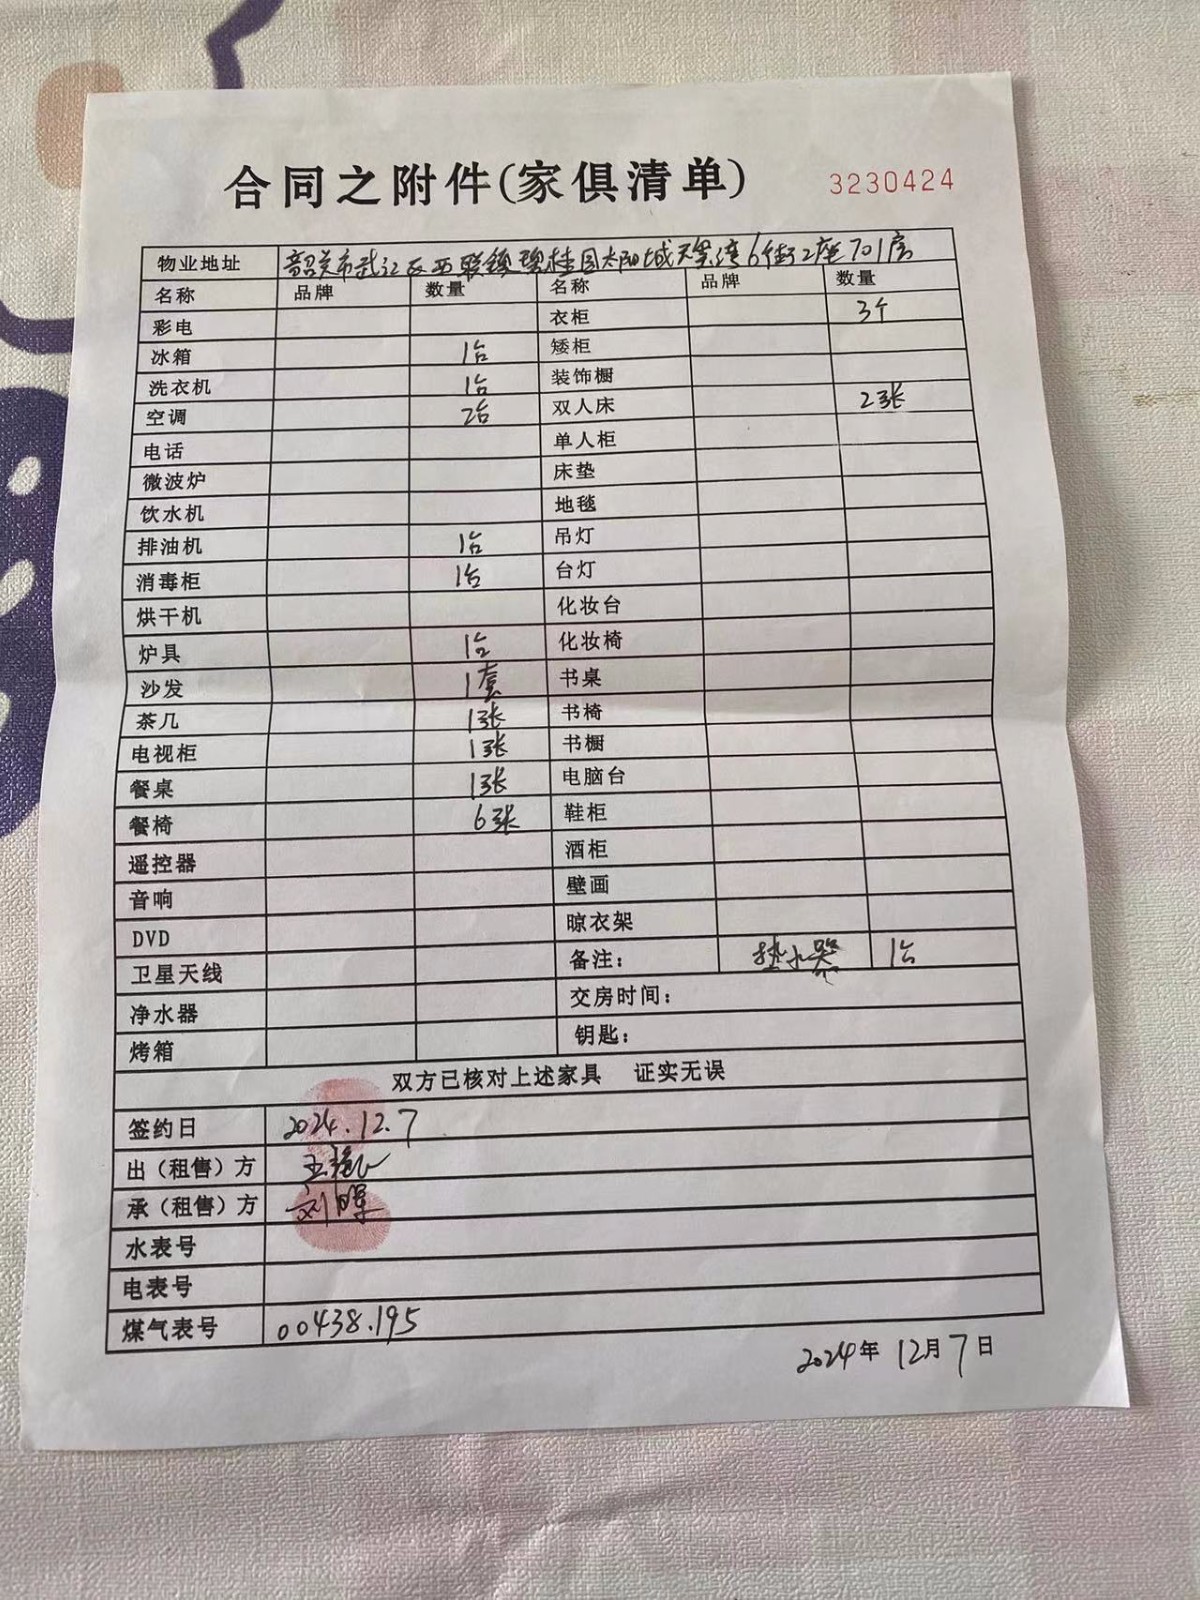 合同之附件(家俱清单) 3230424
物业地址 韶关市武江区西联镇碧桂园太阳城天玺湾6街2座701房
名称 品牌 数量 名称 品牌 数量
彩电 衣柜 3个
冰箱 1台 矮柜
洗衣机 1台 装饰橱
空调 2台 双人床 2张
电话 单人柜
微波炉 床垫
饮水机 地毯
排油机 1台 吊灯
消毒柜 1台 台灯
烘干机 化妆台
炉具 1台 化妆椅
沙发 1套 书桌
茶几 1张 书椅
电视柜 1张 书橱
餐桌 1张 电脑台
餐椅 6张 鞋柜
遥控器 酒柜
音响 壁画
DVD 晾衣架
卫星天线 备注: 热水器 1台
净水器 交房时间:
烤箱 钥匙:
双方已核对上述家具 证实无误
签约日 2024.12.7
出(租售)方
承(租售)方 刘
水表号
电表号
煤气表号 00438.195
2024年 12月 7日